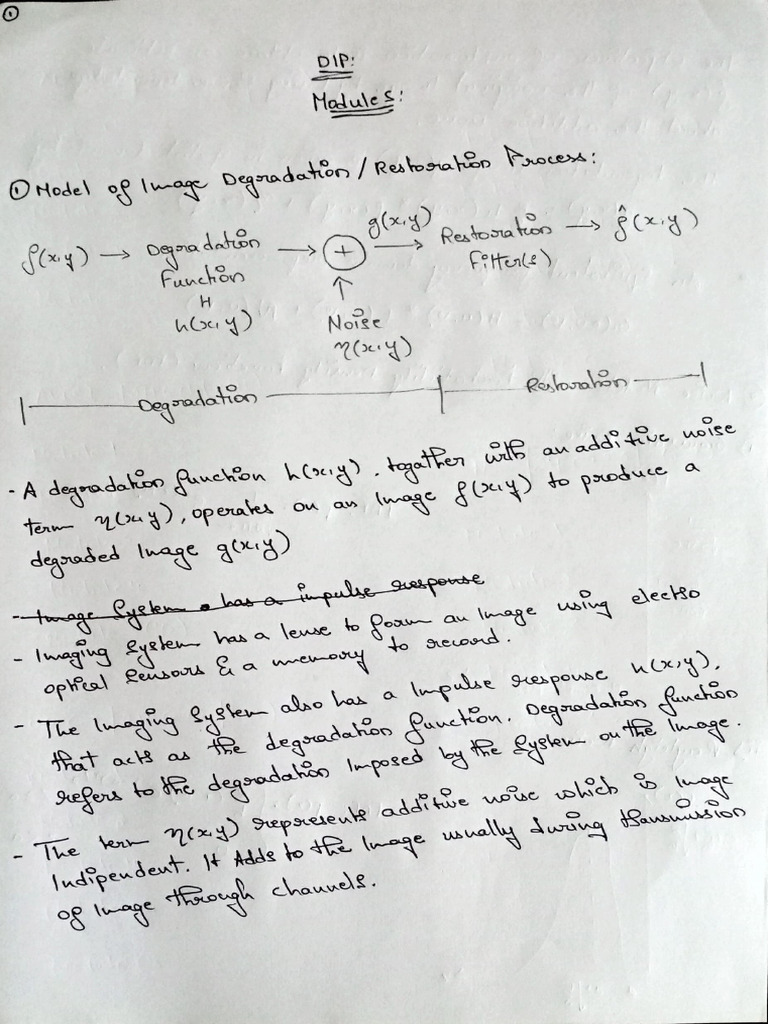 ①
DIP:
Module 5:
① Model of Image Degradation / Restoration Process:
f(x,y) → Degradation Function H h(x,y) → + g(x,y) → Restoration filter(s) → f̂(x,y)
↑
Noise
η(x,y)
Degradation Restoration
- A degradation function h(x,y), together with an additive noise
term η(x,y), operates on an Image f(x,y) to produce a
degraded Image g(x,y)
- Image System has a impulse response
- Imaging System has a lense to form an Image using electro
optical Sensors & a memory to record.
- The Imaging System also has a Impulse response h(x,y),
that acts as the degradation function. Degradation function
refers to the degradation Imposed by the System on the Image.
- The term η(x,y) represents additive noise which is Image
Indipendent. It Adds to the Image usually during transmission
of Image through channels.